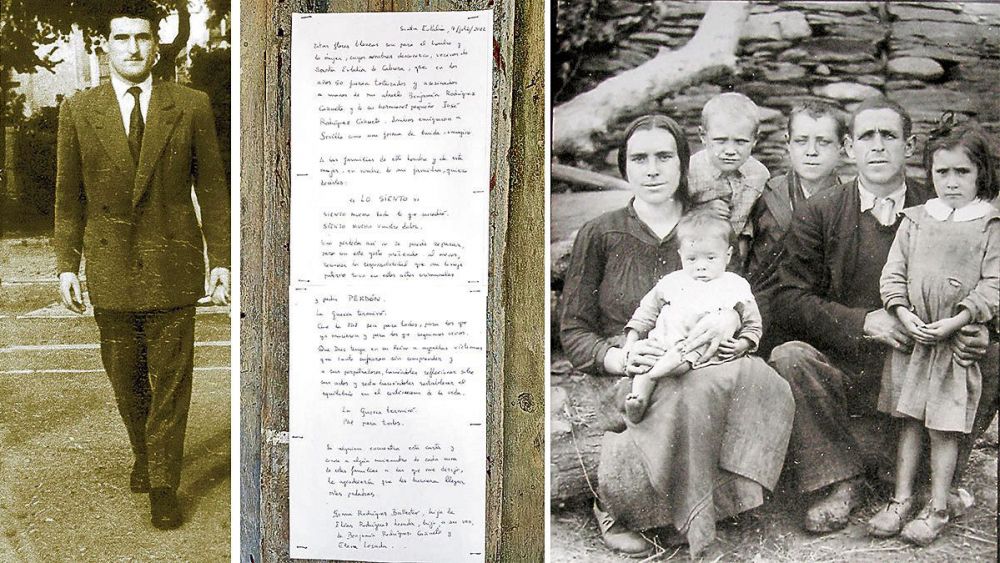 Santa Eulalia, 14/julio/2012
Estas flores blancas son para el hombre y
la mujer, cuyos nombres desconozco, vecinos de
Santa Eulalia de Cabrera, que en los
años 50 fueron torturados y asesinados
a manos de mi abuelo Benjamín Rodríguez
Cañuelo, y de su hermano pequeño José
Rodríguez Cañuelo. Ambos emigraron a
Sevilla como una forma de huida
A las familias de este hombre y de esta
mujer, en nombre de mi familia, quiero
decirles:
LO SIENTO
SIENTO mucho todo lo que sucedió.
SIENTO mucho vuestro dolor.
Una pérdida así no se puede reparar,
pero con este gesto pretendo al menos,
asumir la responsabilidad que mi linaje
paterno tuvo en estos actos
y pedir PERDÓN.
La Guerra terminó.
Que la PAZ sea para todos, para los que
ya murieron y para los que seguimos vivos.
Que Dios tenga en su seno a aquellas víctimas
que tanto sufrieron sin comprender y
a sus perpetradores, haciéndoles reflexionar sobre
sus actos y restableciendo el
equilibrio en el de la vida.
La Guerra terminó.
PAZ para todos.
Si alguien encuentra esta carta y
conoce a algún miembro de cada una
de estas familias a las que me dirijo,
le agradecería que les hiciera llegar
estas palabras.
Rodríguez Ballester, hija de
Elías Rodríguez Losada, hijo a su vez,
de Benjamín Rodríguez Cañuelo y
Elena Losada...